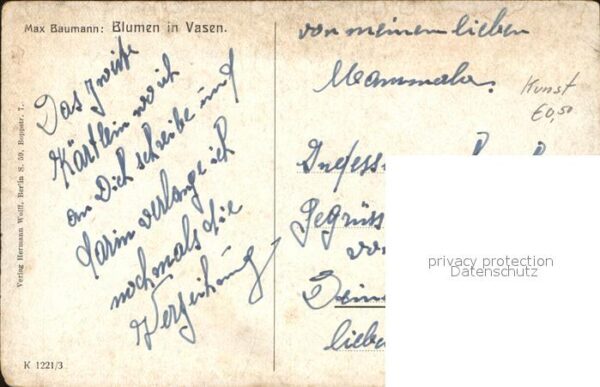 Max Baumann: Blumen in Vasen.
Das zweite
Kärtlein wo ich
an Dich schreibe und
darin verlange ich
nochmals die
Verzeihung
von meinem lieben
Mammale.
Kunst
€0,50
Indessen
Gegrüss
von
Deine
liebe
privacy protection
Datenschutz
Verlag Hermann Wolff, Berlin S. 59, Boppstr. 7.
K 1221/3